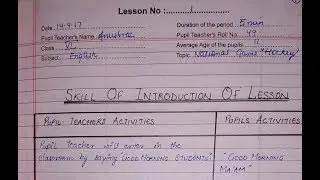 Lesson No : 1
Date 14.9.17 Duration of the period 5 min
Pupil Teacher's Name Anushree Pupil Teacher's Roll No 49
Class VI Average Age of the pupils
Subject English Topic National Game "Hockey"
SKILL OF INTRODUCTION OF LESSON
PUPIL TEACHER'S ACTIVITIES PUPIL'S ACTIVITIES
Pupil Teacher will enter in the
classroom by saying "GOOD MORNING STUDENTS" "GOOD MORNING
MA'AM"